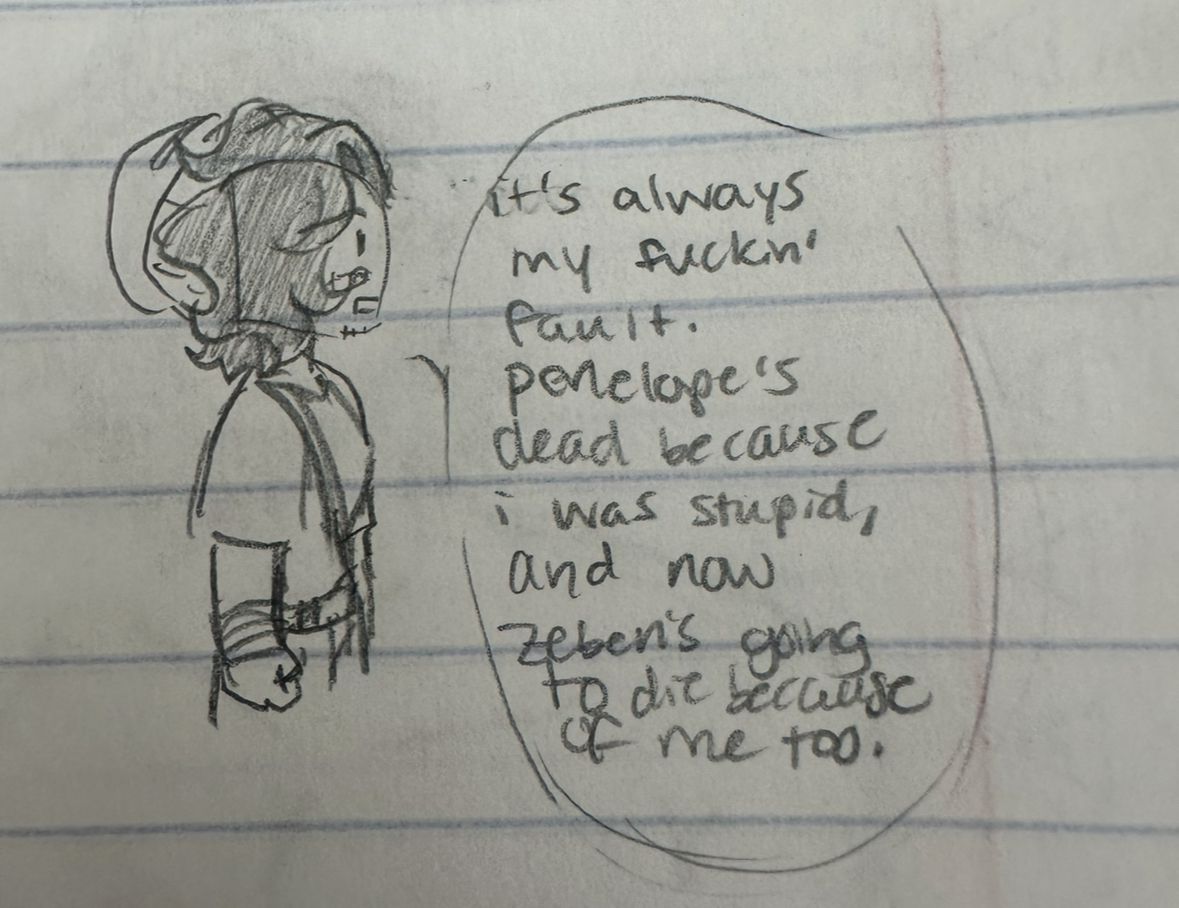 it's always
my fuckin'
fault.
penelope's
dead because
i was stupid,
and now
zeben's going
to die because
of me too.